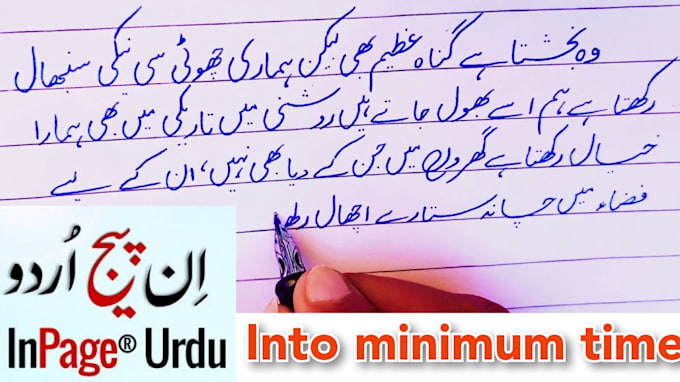 وہ بخشتا ہے گناہ عظیم بھی لیکن ہماری چھوٹی سی نیکی سنبھال
رکھتا ہے ہم اسے بھول جاتے ہیں روشنی میں تاریکی میں بھی ہمارا
خیال رکھتا ہے گھروں میں جن کے دیا بھی نہیں، ان کے لیے
فضاء میں چاند ستارے اچھال رکھ
اِن پیج اُردو
InPage® Urdu
Into minimum time